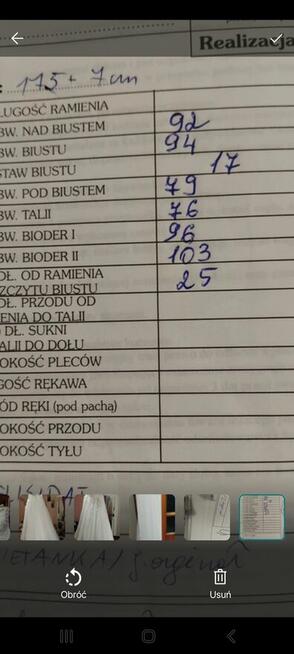 Realizacja
: 175 + 7 cm
ŁUGOŚĆ RAMIENIA
BW. NAD BIUSTEM 92
BW. BIUSTU 94
STAW BIUSTU 17
BW. POD BIUSTEM 79
BW. TALII 76
BW. BIODER I 96
BW. BIODER II 103
DŁ. OD RAMIENIA 25
ZCZYTU BIUSTU
DŁ. PRZODU OD
IENIA DO TALII
) DŁ. SUKNI
ALII DO DOŁU
OKOŚĆ PLECÓW
GOŚĆ RĘKAWA
ÓD RĘKI (pod pachą)
OKOŚĆ PRZODU
OKOŚĆ TYŁU
Obróć
Usuń